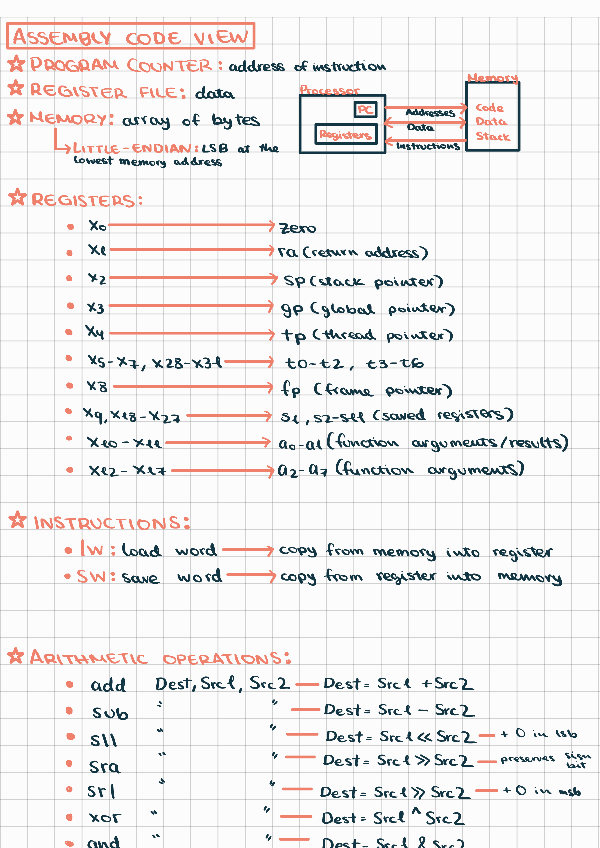 ASSEMBLY CODE VIEW
☆ PROGRAM COUNTER: address of instruction
☆ REGISTER FILE: data
☆ MEMORY: array of bytes
↳ LITTLE-ENDIAN: LSB at the
lowest memory address
Processor
PC
Registers
Addresses
Data
Instructions
Memory
Code
Data
Stack
☆ REGISTERS:
• x0 → zero
• x1 → ra (return address)
• x2 → sp (stack pointer)
• x3 → gp (global pointer)
• x4 → tp (thread pointer)
• x5-x7, x28-x31 → t0-t2, t3-t6
• x8 → fp (frame pointer)
• x9, x18-x27 → s1, s2-s11 (saved registers)
• x10-x11 → a0-a1 (function arguments/results)
• x12-x17 → a2-a7 (function arguments)
☆ INSTRUCTIONS:
• lW: load word → copy from memory into register
• SW: save word → copy from register into memory
☆ ARITHMETIC OPERATIONS:
• add Dest, Src1, Src2 — Dest = Src1 + Src2
• sub " " — Dest = Src1 - Src2
• sll " " — Dest = Src1 << Src2 — + 0 in lsb
• sra " " — Dest = Src1 >> Src2 — preserves sign bit
• srl " " — Dest = Src1 >> Src2 — + 0 in msb
• xor " " — Dest = Src1 ^ Src2
• and " " — Dest = Src1 & Src2